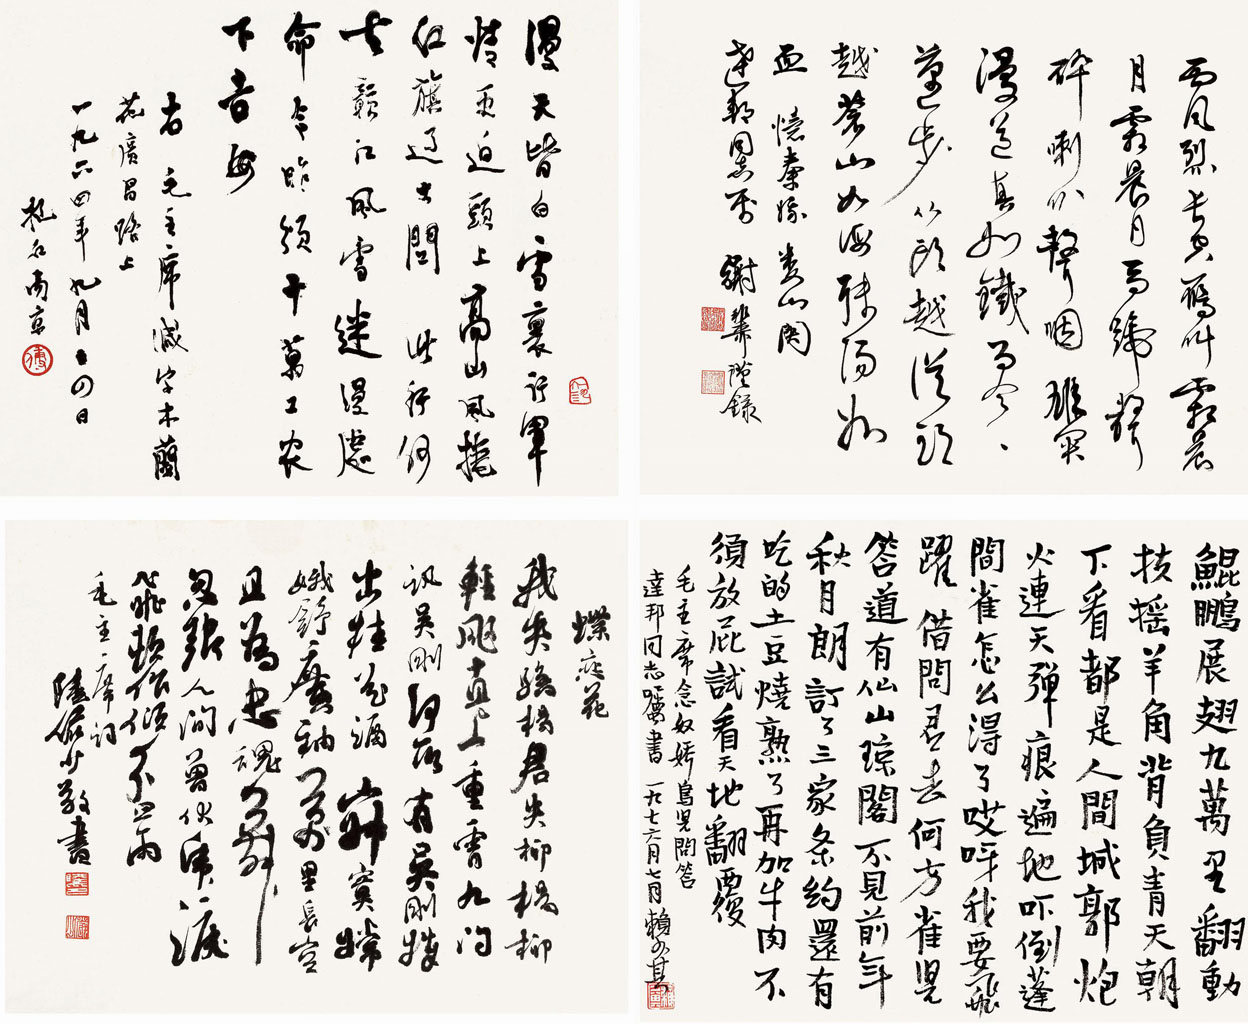 漫天皆白雪裏行軍
情更迫頭上高山風捲
红旗过大關 此行何
去贛江風雪迷漫處
命令昨頒十萬工农
下吉安
右毛主席減字木蘭
花廣昌路上
一九六四年九月二四日
抱石南京
西风烈长空雁叫霜晨
月霜晨月马蹄聲
碎喇叭聲咽 雄関
漫道真如鐵而今、
邁步从头越從頭
越蒼山如海残阳如
血 憶秦娥 娄山関
達邦同志正 謝 錄
蝶恋花
我失驕楊君失柳楊柳
輕颺直上重霄九问
讯吴剛何所有吴剛捧
出桂花酒 寂寞嫦
娥舒廣袖萬里長空
且為忠魂舞
忽報人间曾伏虎淚
飛頓作傾盆雨
毛主席词
陸儼少敬書
鯤鵬展翅九萬里翻動
扶摇羊角背負青天朝
下看都是人間城郭炮
火連天彈痕遍地吓倒蓬
間雀怎么得了哎呀我要飛
躍 借問君去何方雀児
答道有仙山瓊閣不見前年
秋月朗訂了三家条約還有
吃的土豆燒熟了再加牛肉不
須放屁試看天地翻覆
毛主席念奴嬌鳥児問答
達邦同志囑書 一九七六年七月賴少其